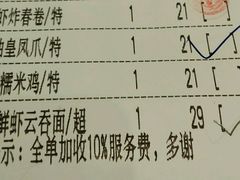 虾炸春卷/特 1 21 [ ]
皇凤爪/特 1 21 [ ]
糯米鸡/特 1 21 [ ]
鲜虾云吞面/超 1 29 [
示: 全单加收10%服务费, 多谢